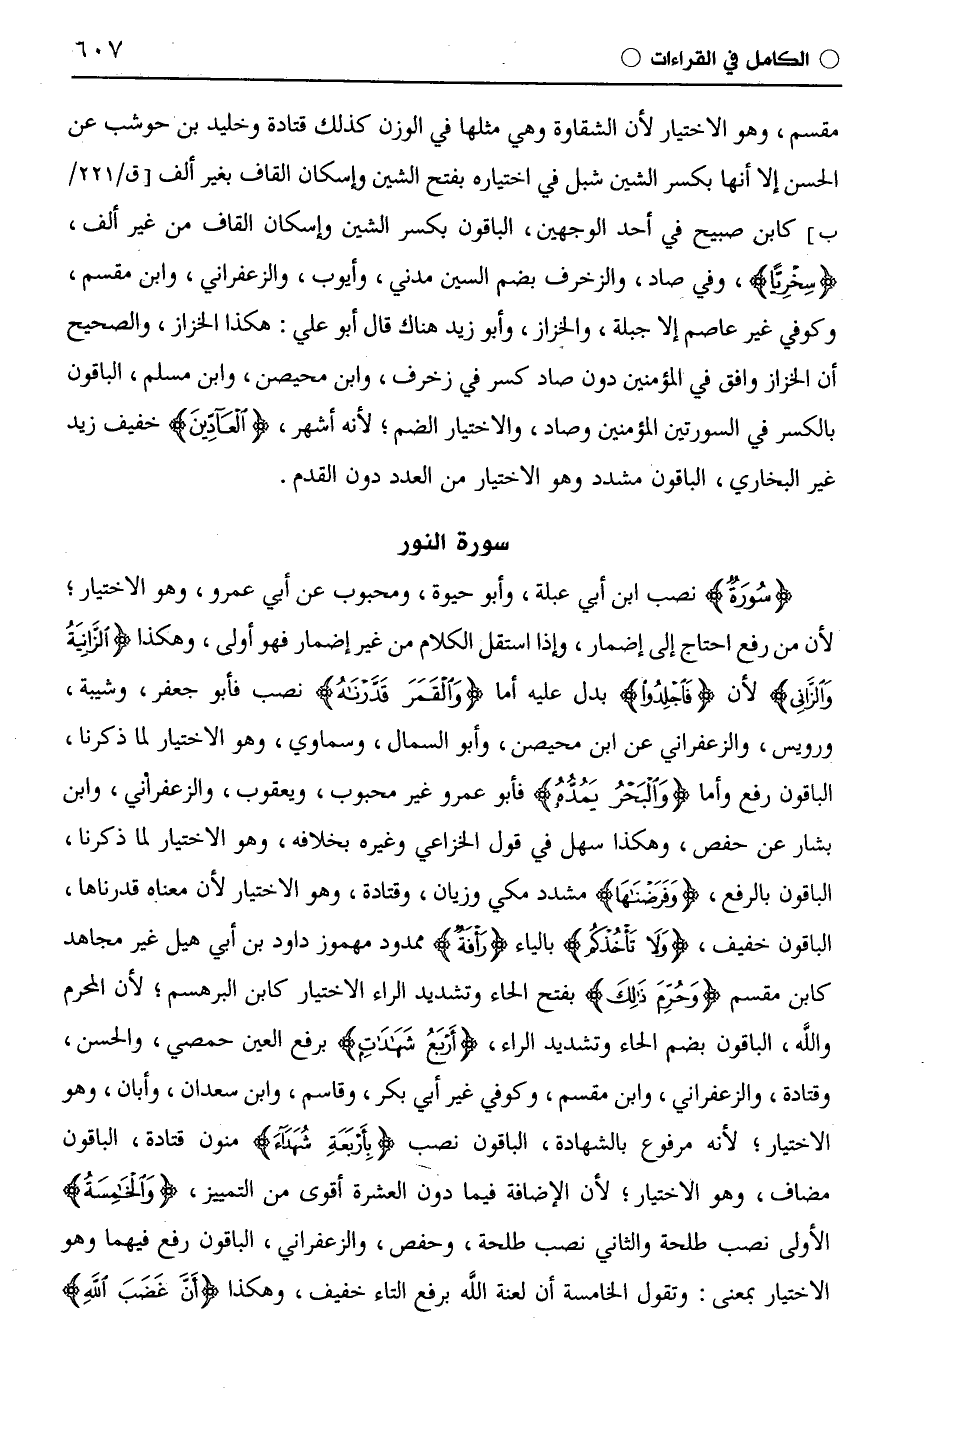 ○ الكامل في القراءات ○ ٦٠٧
مقسم ، وهو الاختيار لأن الشقاوة وهي مثلها في الوزن كذلك قتادة وخليد بن حوشب عن
الحسن إلا أنها بكسر الشين شبل في اختياره بفتح الشين وإسكان القاف بغير ألف [ق/٢٢١/
ب] كابن صبيح في أحد الوجهين ، الباقون بكسر الشين وإسكان القاف من غير ألف ،
﴿سِخْرِيًّا﴾ ، وفي صاد ، والزخرف بضم السين مدني ، وأيوب ، والزعفراني ، وابن مقسم ،
وكوفي غير عاصم إلا جبلة ، والخزاز ، وأبو زيد هناك قال أبو علي : هكذا الخزاز ، والصحيح
أن الخزاز وافق في المؤمنين دون صاد كسر في زخرف ، وابن محيصن ، وابن مسلم ، الباقون
بالكسر في السورتين المؤمنين وصاد ، والاختيار الضم ؛ لأنه أشهر ، ﴿ٱلْعَآدِّينَ﴾ خفيف زيد
غير البخاري ، الباقون مشدد وهو الاختيار من العدد دون القدم .
سورة النور
﴿سُورَةٌ﴾ نصب ابن أبي عبلة ، وأبو حيوة ، ومحبوب عن أبي عمرو ، وهو الاختيار ؛
لأن من رفع احتاج إلى إضمار ، وإذا استقل الكلام من غير إضمار فهو أولى ، وهكذا ﴿ٱلزَّانِيَةُ
وَٱلزَّانِى﴾ لأن ﴿فَٱجْلِدُوا۟﴾ بدل عليه أما ﴿وَٱلْقَمَرَ قَدَّرْنَـٰهُ﴾ نصب فأبو جعفر ، وشيبة ،
ورويس ، والزعفراني عن ابن محيصن ، وأبو السمال ، وسماوي ، وهو الاختيار لما ذكرنا ،
الباقون رفع وأما ﴿وَٱلْبَحْرُ يَمُدُّهُۥ﴾ فأبو عمرو غير محبوب ، ويعقوب ، والزعفراني ، وابن
بشار عن حفص ، وهكذا سهل في قول الخزاعي وغيره بخلافه ، وهو الاختيار لما ذكرنا ،
الباقون بالرفع ، ﴿وَفَرَضْنَـٰهَا﴾ مشدد مكي وزيان ، وقتادة ، وهو الاختيار لأن معناه قدرناها ،
الباقون خفيف ، ﴿وَلَا تَأْخُذْكُم﴾ بالياء ﴿رَأْفَةٌ﴾ ممدود مهموز داود بن أبي هيل غير مجاهد
كابن مقسم ﴿وَحُرِّمَ ذَٰلِكَ﴾ بفتح الحاء وتشديد الراء الاختيار كابن البرهسم ؛ لأن المحرم
واللَّه ، الباقون بضم الحاء وتشديد الراء ، ﴿أَرْبَعُ شَهَـٰدَٰتٍ﴾ برفع العين حمصي ، والحسن ،
وقتادة ، والزعفراني ، وابن مقسم ، وكوفي غير أبي بكر ، وقاسم ، وابن سعدان ، وأبان ، وهو
الاختيار ؛ لأنه مرفوع بالشهادة ، الباقون نصب ﴿بِأَرْبَعَةِ شُهَدَآءَ﴾ منون قتادة ، الباقون
مضاف ، وهو الاختيار ؛ لأن الإضافة فيما دون العشرة أقوى من التمييز ، ﴿وَٱلْخَـٰمِسَةُ﴾
الأولى نصب طلحة والثاني نصب طلحة ، وحفص ، والزعفراني ، الباقون رفع فيهما وهو
الاختيار بمعنى : وتقول الخامسة أن لعنة اللَّه برفع التاء خفيف ، وهكذا ﴿أَنَّ غَضَبَ ٱللَّهِ﴾